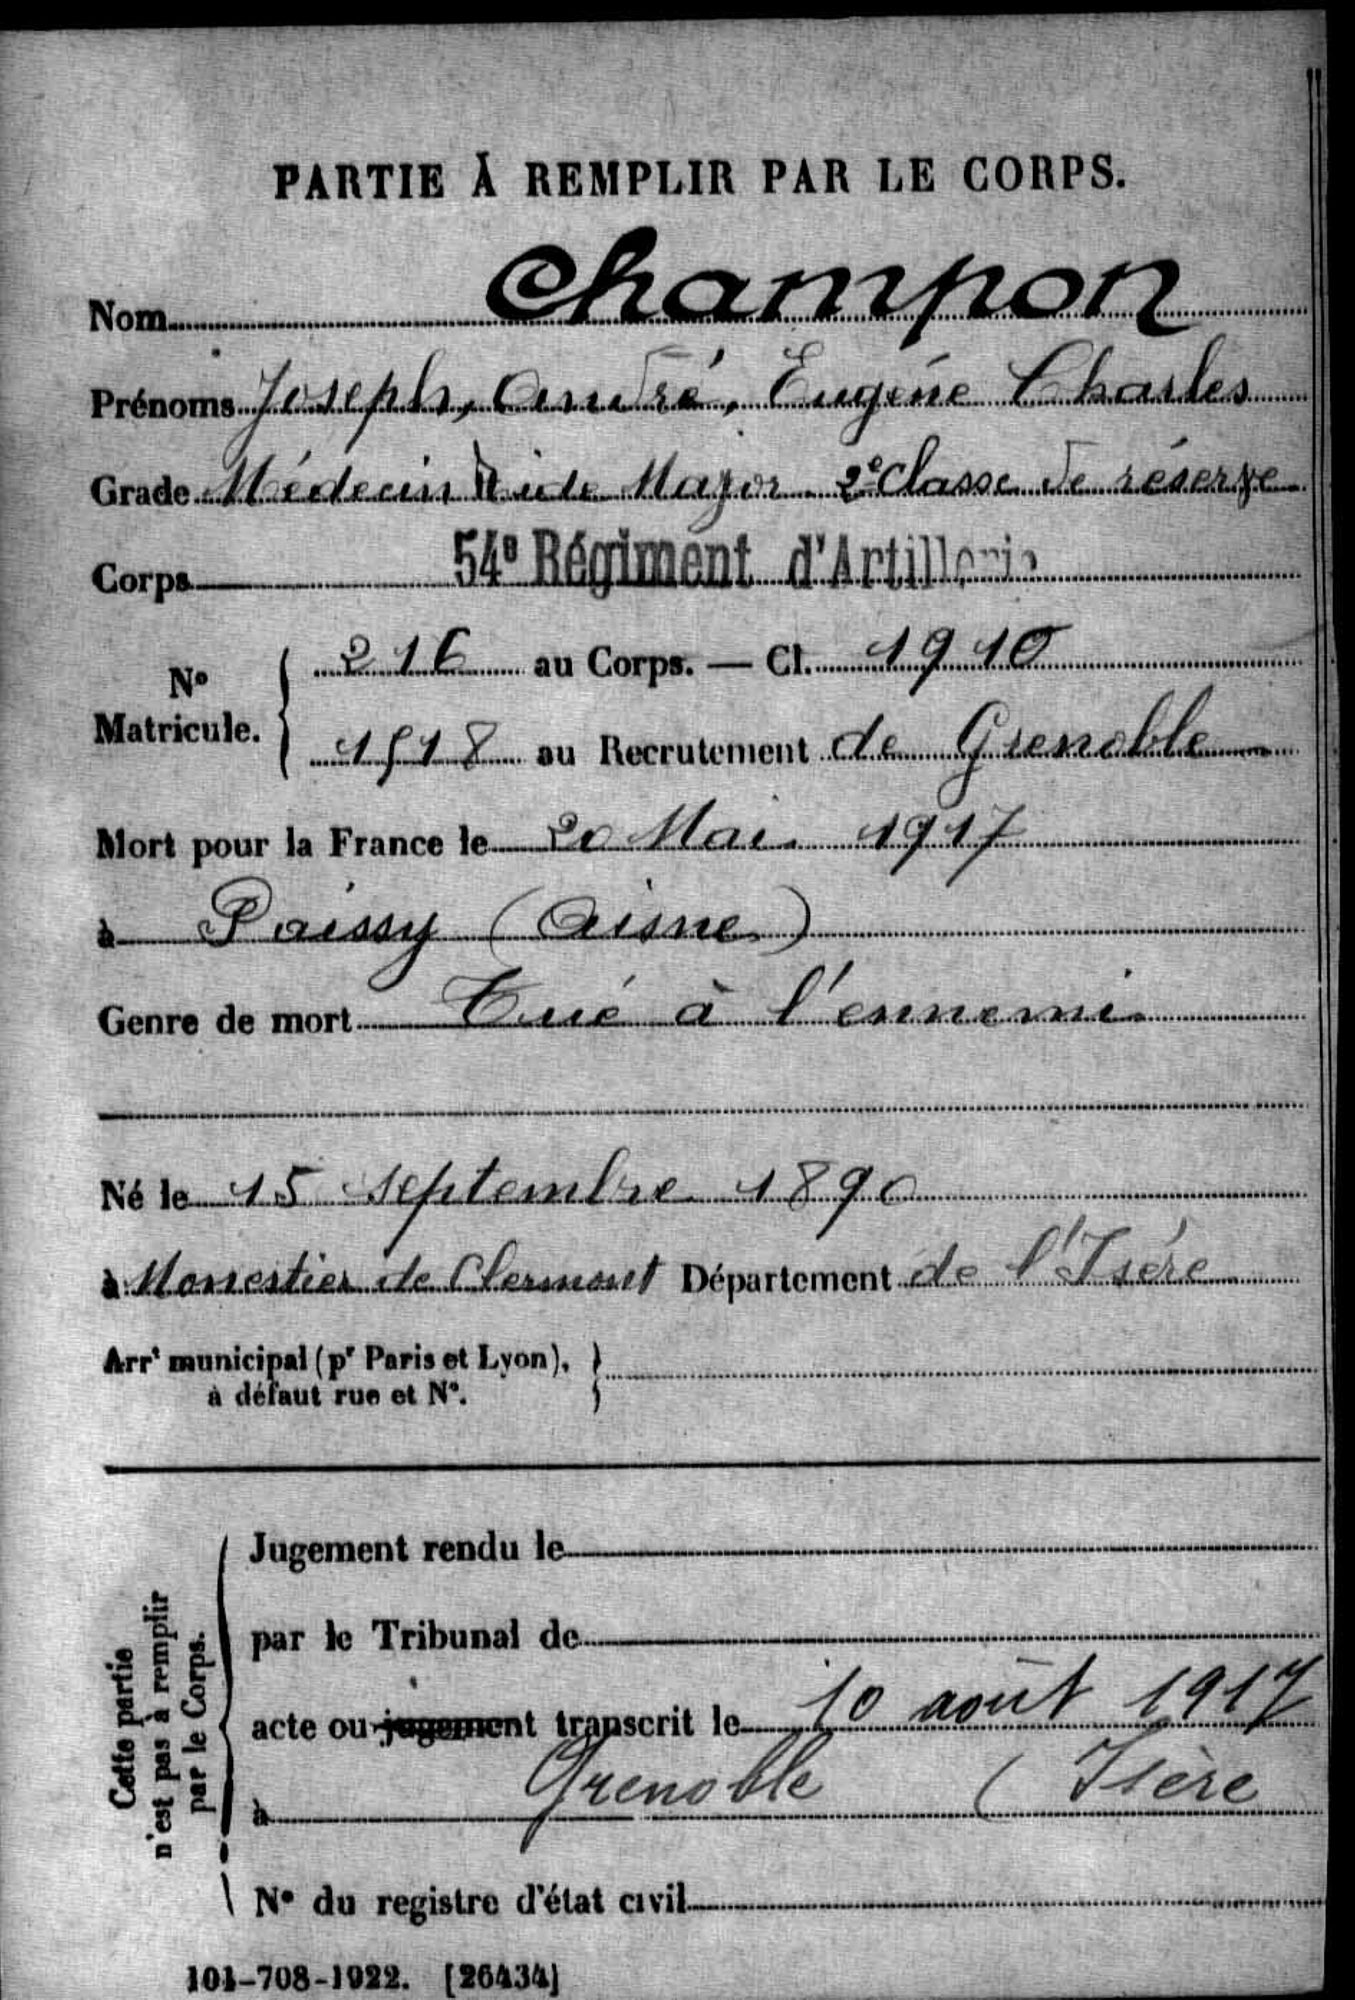 PARTIE À REMPLIR PAR LE CORPS.
Nom Champon
Prénoms Joseph, André, Eugène Charles
Grade Médecin Aide Major 2e Classe de réserve
Corps 54e Régiment d'Artillerie
N° Matricule. 216 au Corps. — Cl. 1910
1518 au Recrutement de Grenoble
Mort pour la France le 20 Mai 1917
à Paissy (Aisne)
Genre de mort Tué à l'ennemi
Né le 15 septembre 1890
à Monestier de Clermont Département de l'Isère
Arrt municipal (pr Paris et Lyon),
à défaut rue et N°.
Cette partie
n'est pas à remplir
par le Corps.
Jugement rendu le
par le Tribunal de
acte ou jugement transcrit le 10 août 1917
à Grenoble (Isère
N° du registre d'état civil
101-708-1922. [26434]